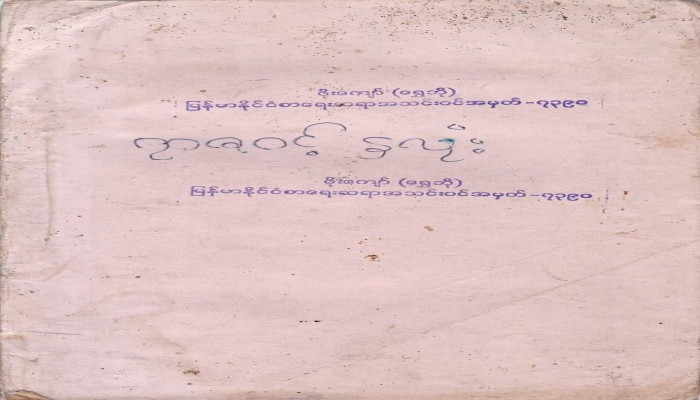 မိုးကျော် (ရွှေဘို)
မြန်မာနိုင်ငံစာရေးဆရာအသင်းဝင်အမှတ်-၇၃၉၀
ဂုဏဝင့် နှလုံး
မိုးကျော် (ရွှေဘို)
မြန်မာနိုင်ငံစာရေးဆရာအသင်းဝင်အမှတ်-၇၃၉၀